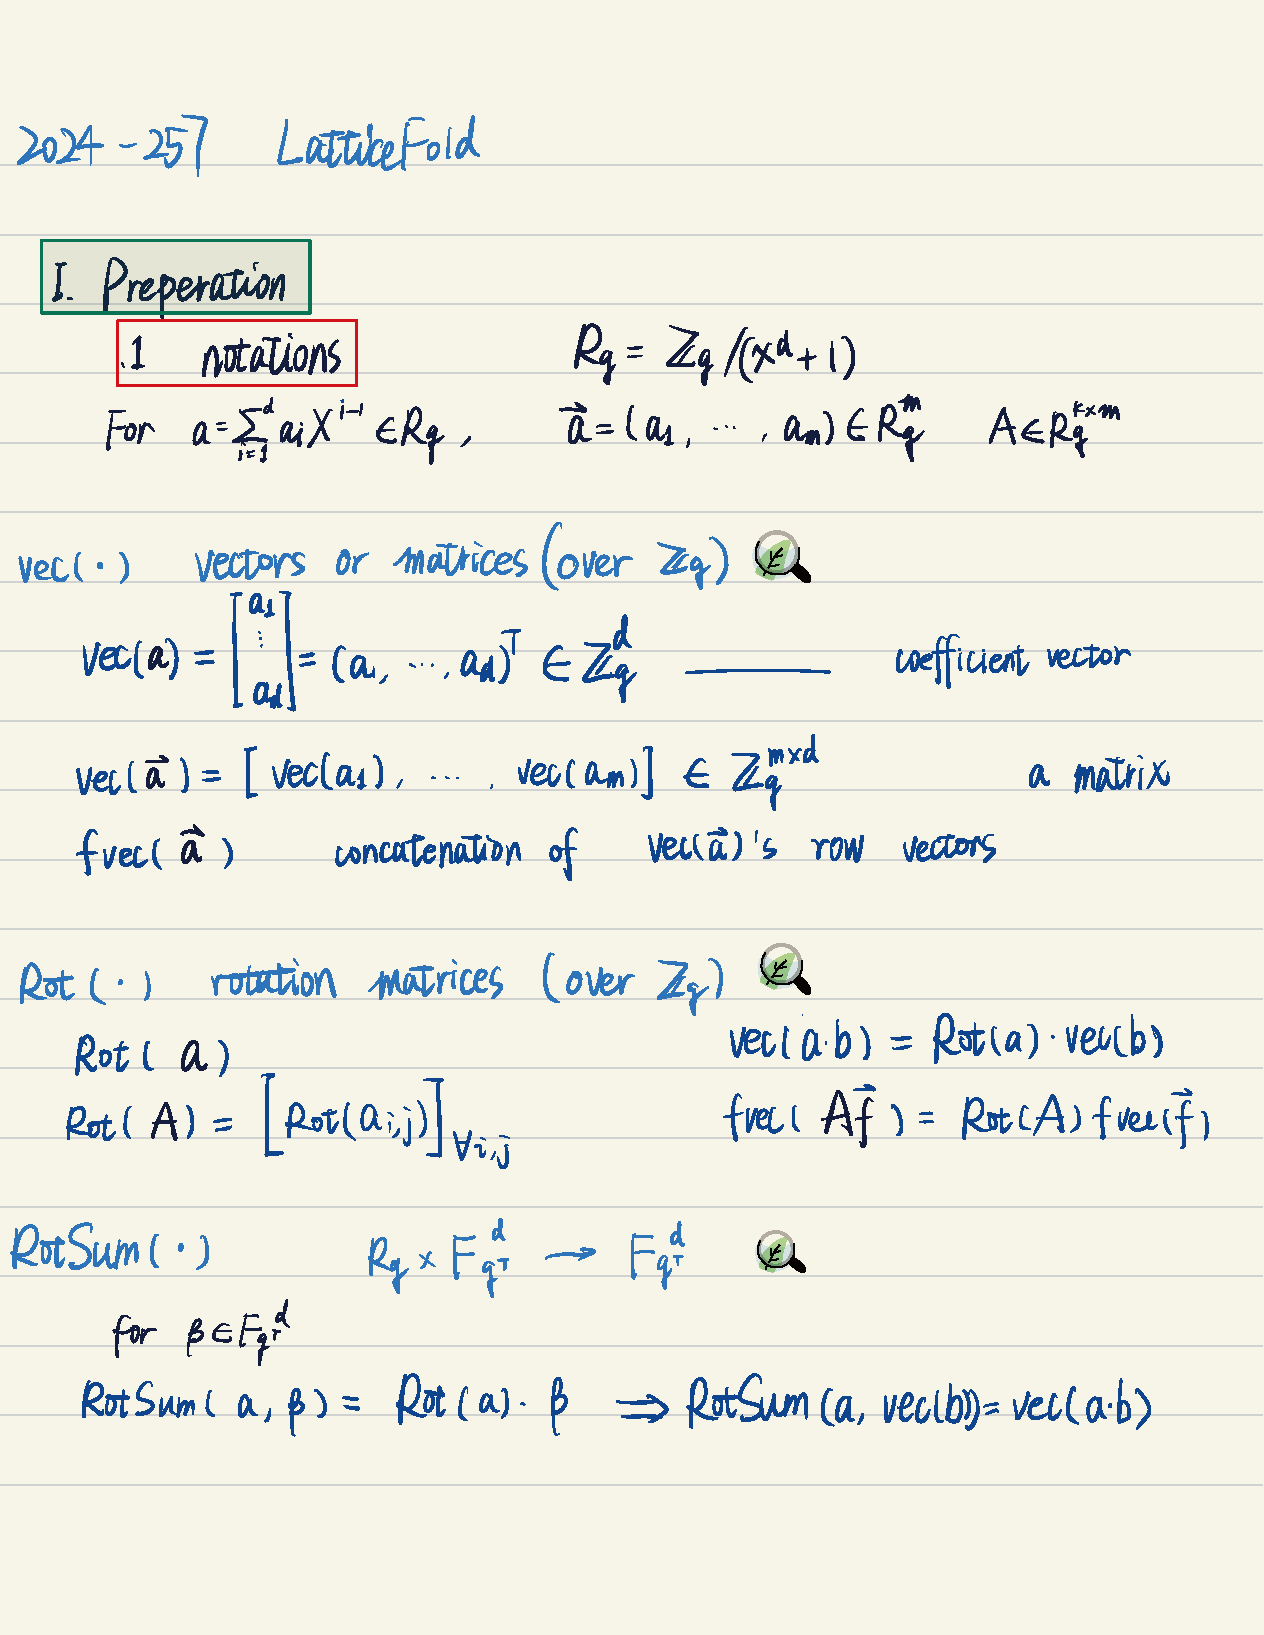 2024-257 LatticeFold
I. Preperation
.1 notations R_q = ℤ_q/(x^d+1)
For a = ∑_{i=1}^d a_i X^{i-1} ∈ R_q , a⃗ = (a_1, ⋯, a_m) ∈ R_q^m A ∈ R_q^{k×m}
vec(·) vectors or matrices (over ℤ_q)
vec(a) = [a_1 ⋮ a_d] = (a_1, ⋯, a_d)^T ∈ ℤ_q^d —— coefficient vector
vec(a⃗) = [vec(a_1), ⋯, vec(a_m)] ∈ ℤ_q^{m×d} a matrix
fvec(a⃗) concatenation of vec(a⃗)'s row vectors
Rot(·) rotation matrices (over ℤ_q)
Rot(a) vec(a·b) = Rot(a)·vec(b)
Rot(A) = [Rot(a_{i,j})]_{∀i,j} fvec(Af⃗) = Rot(A) fvec(f⃗)
RotSum(·) R_q × F_{q^τ}^d → F_{q^τ}^d
for β ∈ F_{q^τ}^d
RotSum(a, β) = Rot(a)·β ⟹ RotSum(a, vec(b)) = vec(a·b)